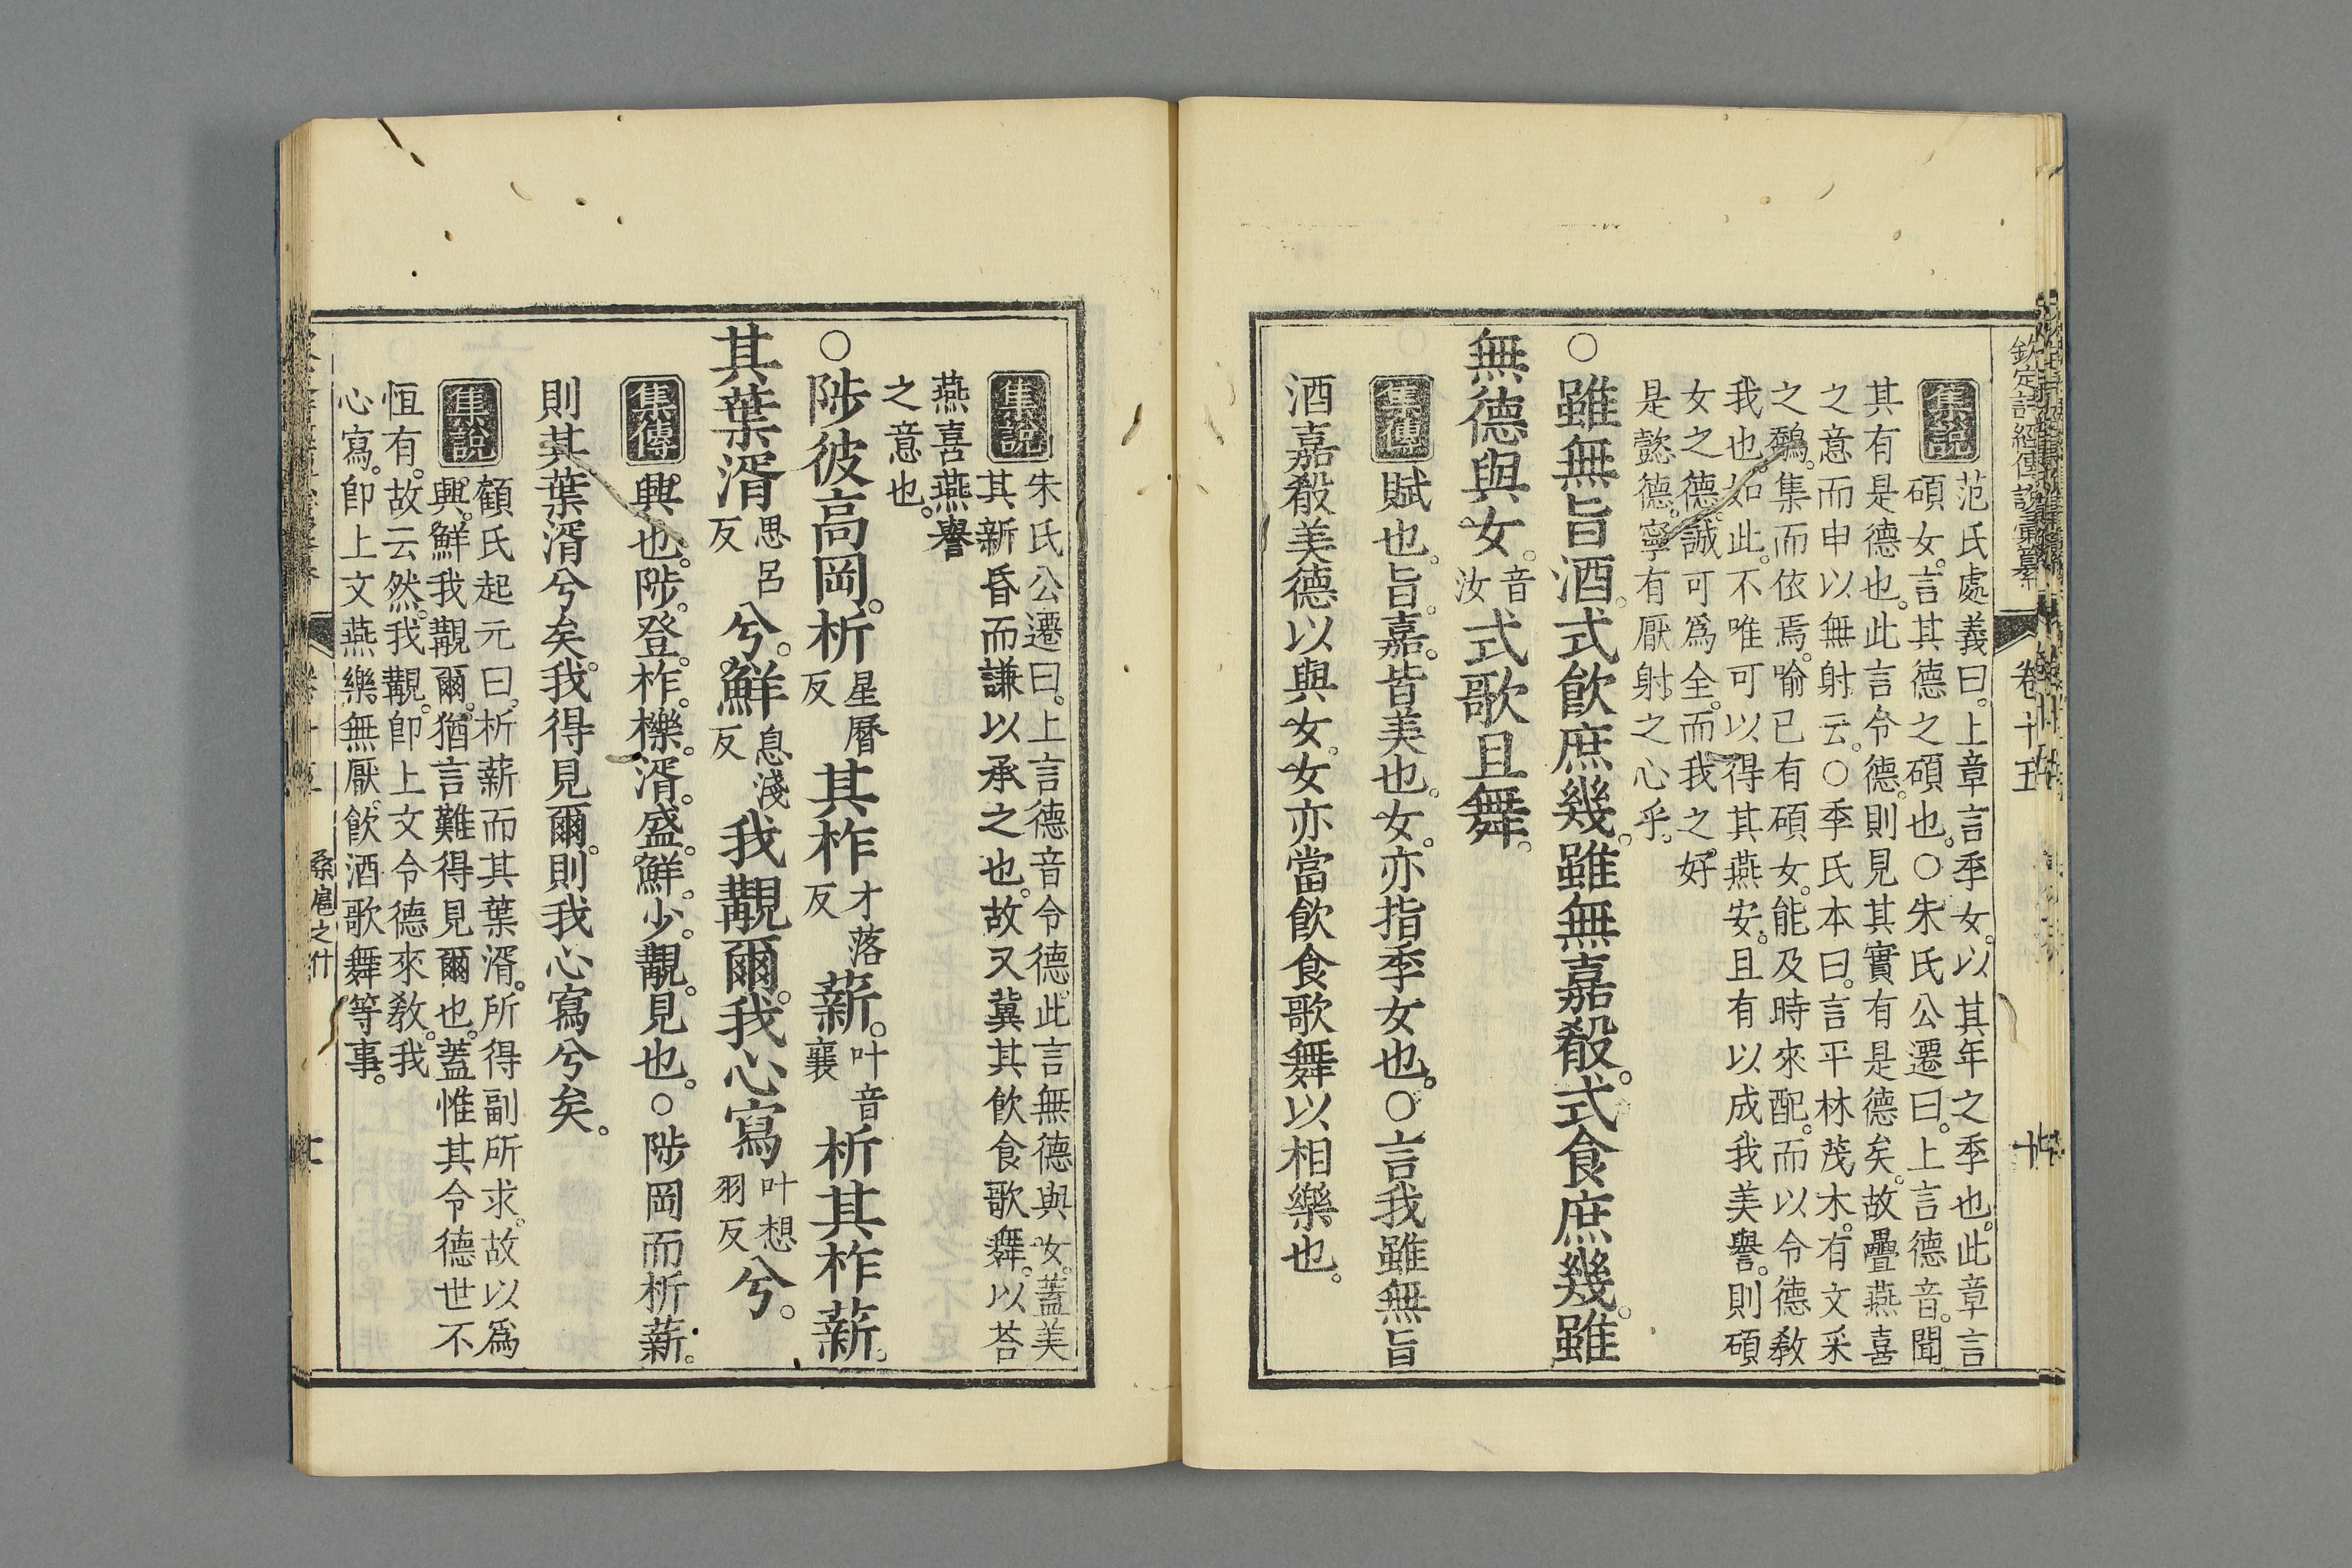 欽定詩經傳說彙纂
卷十五
集說
范氏處義曰。上章言季女。以其年之季也。此章言
碩女。言其德之碩也。○朱氏公遷曰。上言德音。聞
其有是德也。此言令德。則見其實有是德矣。故疊燕喜
之意而申以無射云。○季氏本曰。言平林茂木。有文采
之鷮。集而依焉。喻已有碩女。能及時來配。而以令德敎
我也。如此。不唯可以得其燕安。且有以成我美譽。則碩
女之德。誠可爲全。而我之好
是懿德。寧有厭射之心乎。
○雖無旨酒。式飮庶幾。雖無嘉殽。式食庶幾。雖
無德與女。音汝式歌且舞。
集傳
賦也。旨。嘉。皆美也。女。亦指季女也。○言我雖無旨
酒嘉殽美德以與女。女亦當飮食歌舞以相樂也。
集說
朱氏公遷曰。上言德音令德。此言無德與女。蓋美
其新昏而謙以承之也。故又冀其飮食歌舞。以荅
燕喜燕譽
之意也。
○陟彼高岡。析星曆反其柞才落反薪。叶音襄析其柞薪。
其葉湑思呂反兮。鮮息淺反我覯爾。我心寫叶想羽反兮。
集傳
興也。陟。登。柞。櫟。湑。盛。鮮。少。覯。見也。○陟岡而析薪。
則其葉湑兮矣。我得見爾。則我心寫兮矣。
集說
顧氏起元曰。析薪而其葉湑。所得副所求。故以爲
興。鮮我覯爾。猶言難得見爾也。蓋惟其令德世不
恒有。故云然。我覯。卽上文令德來敎。我
心寫。卽上文燕樂無厭。飮酒歌舞等事。
桑扈之什